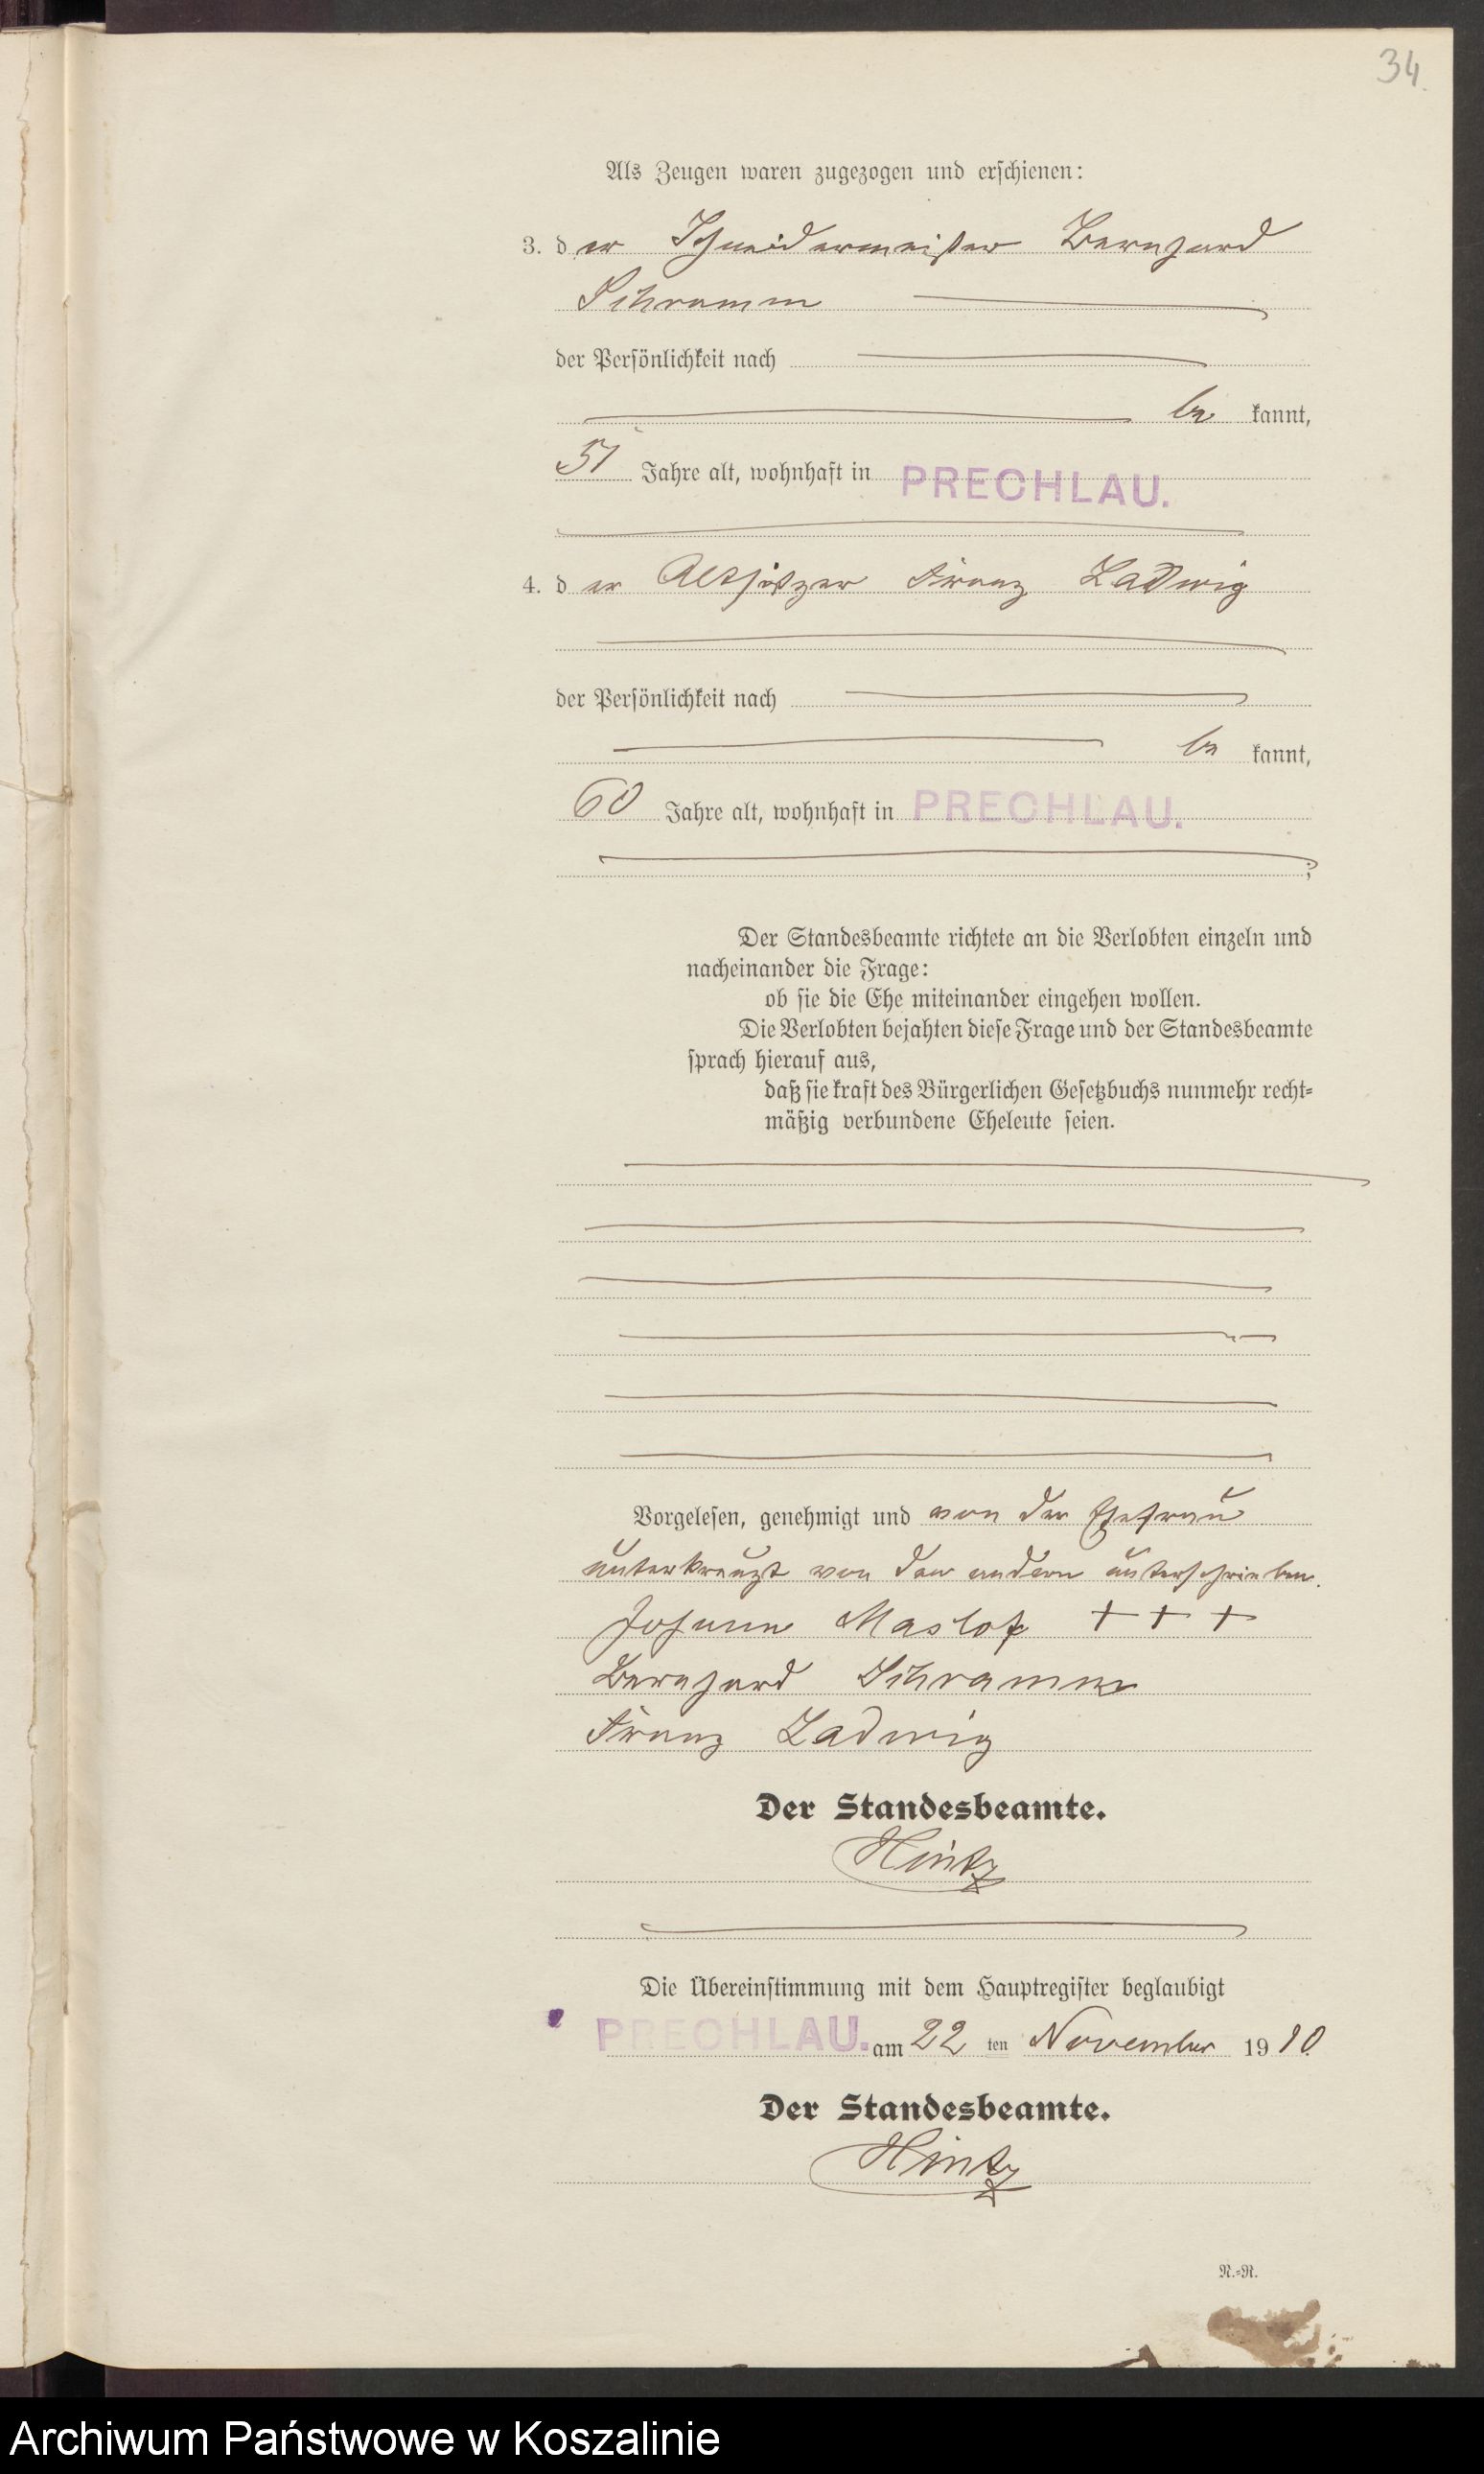 34.
Als Zeugen waren zugezogen und erschienen:
3. der Schneidermeister Bernhard
Schramm
der Persönlichkeit nach
be kannt,
51 Jahre alt, wohnhaft in PRECHLAU.
4. der Altsitzer Franz Ladwig
der Persönlichkeit nach
be kannt,
60 Jahre alt, wohnhaft in PRECHLAU.
;
Der Standesbeamte richtete an die Verlobten einzeln und
nacheinander die Frage:
ob sie die Ehe miteinander eingehen wollen.
Die Verlobten bejahten diese Frage und der Standesbeamte
sprach hierauf aus,
daß sie kraft des Bürgerlichen Gesetzbuchs nunmehr recht-
mäßig verbundene Eheleute seien.
Vorgelesen, genehmigt und von der Ehefrau
unterkreuzt von den andern unterschrieben.
Johann Masloff + + +
Bernhard Schramm
Franz Ladwig
Der Standesbeamte.
Hintz
Die Übereinstimmung mit dem Hauptregister beglaubigt
PRECHLAU. am 22 ten November 1910.
Der Standesbeamte.
Hintz
N.-R.
Archiwum Państwowe w Koszalinie